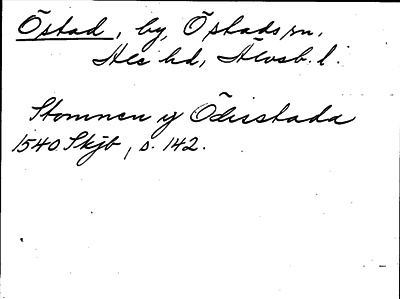 Östad, by, Östads sn.
Ale hd, Älvsb. l.
Stommen y Ödisstada
1540 Skjb, s. 142.